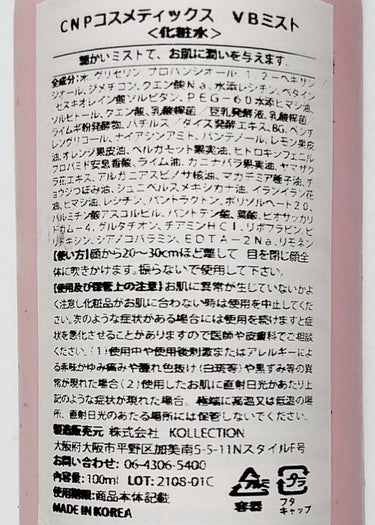 CNPコスメティックス　VBミスト
<化粧水>
細かいミストで、お肌に潤いを与えます。
全成分:水、グリセリン、プロパンジオール、1,2-ヘキサン
ジオール、ジメチコン、クエン酸Na、水添レシチン、ベタイン、
セスキオレイン酸ソルビタン、PEG-60水添ヒマシ油、
ソルビトール、クエン酸、乳酸桿菌/豆乳発酵液、乳酸桿菌/
ライムギ発酵物、バチルス/ダイズ発酵エキス、BG、ペンチ
レングリコール、ナイアシンアミド、パンテノール、レモン果皮
油、オレンジ果皮油、ベルガモット果実油、ヒドロキシフェニル
プロパミド安息香酸、ライム油、カニナバラ果実油、ヤマザク
ラ花エキス、アルガニアスピノサ核油、マカデミア種子油、チ
ョウジつぼみ油、ジュニペルスメキシカナ油、イランイラン花
油、ヒマシ油、レシチン、パントラクトン、ポリソルベート20、
パルミチン酸アスコルビル、パントテン酸、葉酸、ビオサッカリ
ドガム-4、グルタチオン、チアミンHCl、リボフラビン、ピ
リドキシン、シアノコバラミン、EDTA-2Na、リモネン
【使い方】顔から20~30cmほど離して　目を閉じ顔全
体に吹きかけます。振らないで使用して下さい。
【使用及び保管上の注意】お肌に異常が生じていないかよ
く注意し化粧品がお肌に合わない時は使用を中止してくだ
さい。次のような症状がある場合には使用を続けますと症
状を悪化させることがありますので医師や皮膚科でご相談
ください。(1)使用中や使用後刺激またはアレルギーによ
る赤味かゆみ痛みや腫れ色抜け(白斑等)や黒ずみ等の異
常が現れた場合(2)使用したお肌に直射日光があたり上
記のような症状が現れた場合。極端に高温又は低温の場
所、直射日光のあたる場所には保管しないでください。
製造販売元 株式会社　KOLLECTION
大阪府大阪市平野区加美南5-5-11NスタイルF号
お問い合わせ: 06-4306-5400
内容量: 100ml　LOT: 2108-01C
使用期限:商品本体記載
MADE IN KOREA
アルミ
容器
プラ
フタ
キャップ